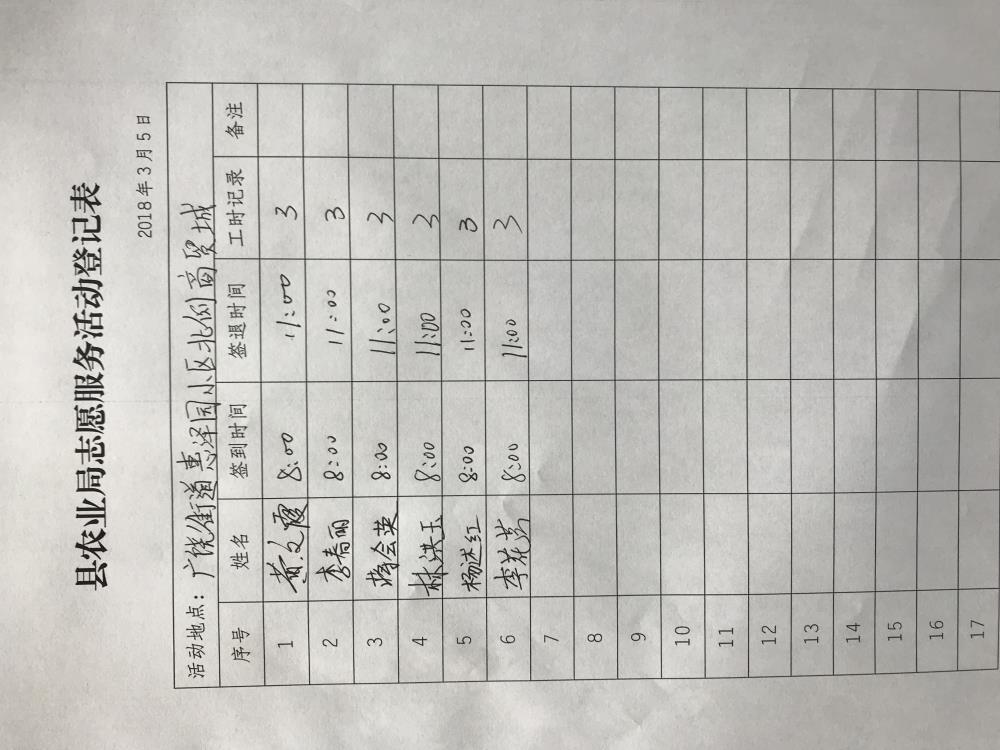 县农业局志愿服务活动登记表
2018年3月5日
活动地点：广饶街道惠泽园小区北侧商贸城
序号 姓名 签到时间 签退时间 工时记录 备注
1 黄文霞 8:00 11:00 3
2 李春丽 8:00 11:00 3
3 蒋会英 8:00 11:00 3
4 林洪玉 8:00 11:00 3
5 杨述红 8:00 11:00 3
6 李花芳 8:00 11:00 3
7
8
9
10
11
12
13
14
15
16
17